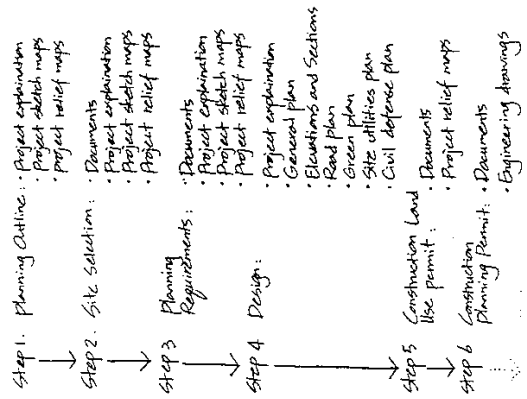 Step 1. Planning Outline: • Project explaination
• Project sketch maps
• Project relief maps
Step 2. Site Selection: • Documents
• Project explaination
• Project sketch maps
• Project relief maps
Step 3 Planning Requirements: • Documents
• Project explaination
• Project sketch maps
• Project relief maps
Step 4 Design: • Project explaination
• General plan
• Elevations and Sections
• Road plan
• Green plan
• Site utilities plan
• Civil defense plan
Step 5 Construction Land Use permit: • Documents
• Project relief maps
Step 6 Construction Planning Permit: • Documents
• Engineering drawings